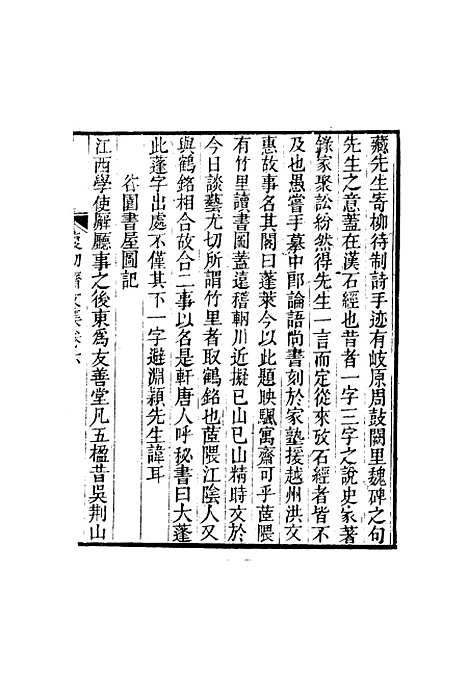 藏先生寄柳待制詩手迹有岐原周鼓闕里魏碑之句
先生之意蓋在漢石經也昔者一字三字之說史家著
錄家聚訟紛然得先生一言而定從來攷石經者皆不
及也愚嘗手摹中郎論語尚書刻於家塾援越州洪文
惠故事名其閣曰蓬萊今以此題映颿寓齋可乎茝隈
有竹里讀書圖蓋遠稽輞川近擬已山已山精時文於
今日談藝尤切所謂竹里者取鶴銘也茝隈江陰人又
與鶴銘相合故合二事以名是軒唐人呼秘書曰大蓬
此蓬字出處不僅其下一字避淵穎先生諱耳
谷園書屋圖記
江西學使廨廳事之後東爲友善堂凡五楹昔吳荆山
復初齋文集卷六